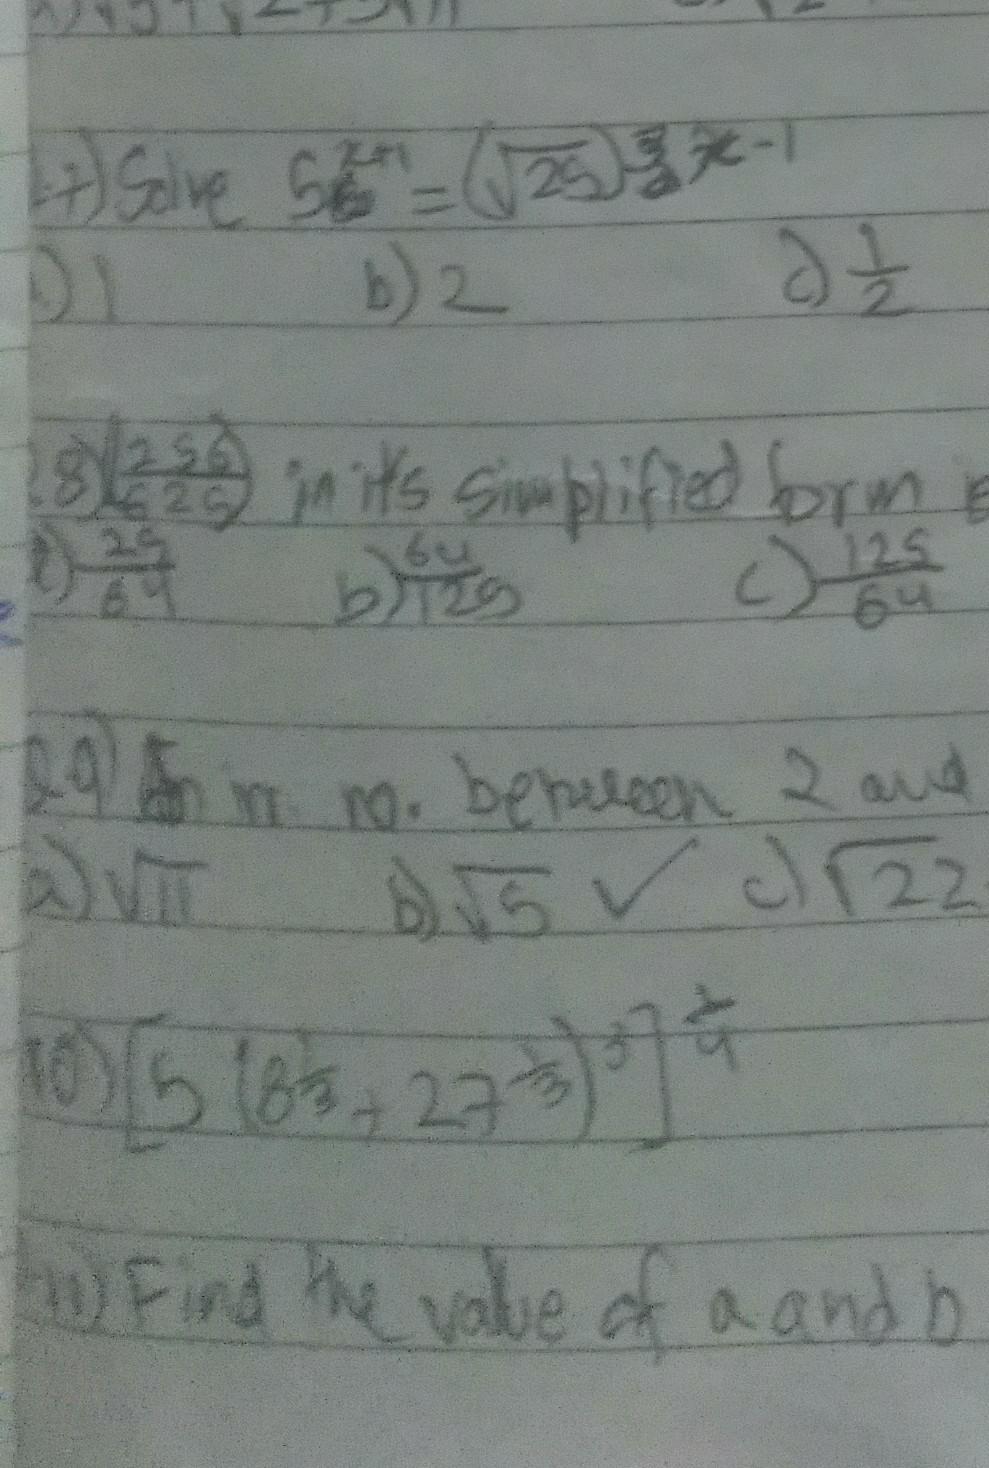 Solve 5^x+1 = (√25) x-1
1 b) 2 c) 1/2
8) (256/625) in its simplified form
25/64 b) 64/125 c) 125/64
29) m no. between 2 and
a) √11 b) √5 ✓ c) √22
10) [5 (8^1/3 + 27^1/3)^3]^1/4
11) Find the value of a and b